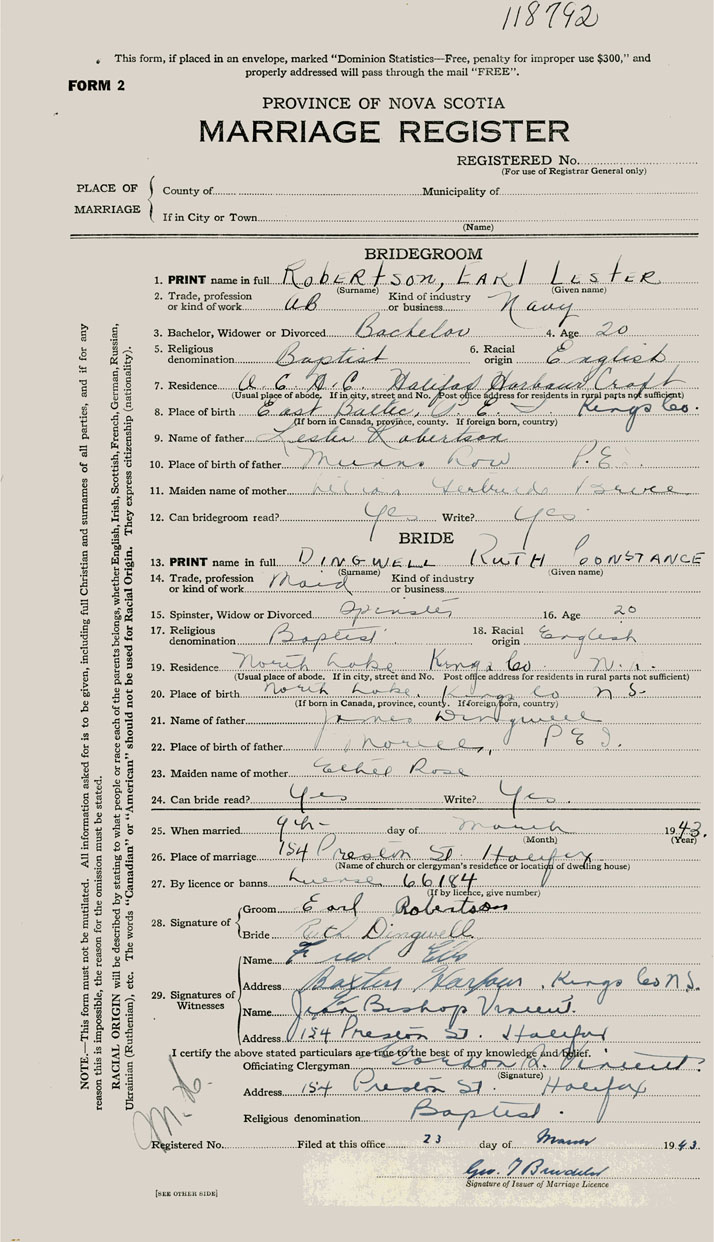 118792
This form, if placed in an envelope, marked “Dominion Statistics—Free, penalty for improper use $300,” and
properly addressed will pass through the mail “FREE”.
FORM 2
PROVINCE OF NOVA SCOTIA
MARRIAGE REGISTER
REGISTERED No.
(For use of Registrar General only)
PLACE OF MARRIAGE
County of Municipality of
If in City or Town
(Name)
BRIDEGROOM
1. PRINT name in full ROBERTSON, EARL LESTER
(Surname) (Given name)
2. Trade, profession or kind of work AB Kind of industry or business Navy
3. Bachelor, Widower or Divorced Bachelor 4. Age 20
5. Religious denomination Baptist 6. Racial origin English
7. Residence Halifax Harbour Craft
(Usual place of abode. If in city, street and No. Post office address for residents in rural parts not sufficient)
8. Place of birth East Baltic, P. E. I. Kings Co.
(If born in Canada, province, county. If foreign born, country)
9. Name of father Lester Robertson
10. Place of birth of father Row P.E.
11. Maiden name of mother Gertrude Bruce
12. Can bridegroom read? Yes Write? Yes
BRIDE
13. PRINT name in full DINGWELL RUTH CONSTANCE
(Surname) (Given name)
14. Trade, profession or kind of work Maid Kind of industry or business
15. Spinster, Widow or Divorced Spinster 16. Age 20
17. Religious denomination Baptist 18. Racial origin English
19. Residence North Lake Kings Co
(Usual place of abode. If in city, street and No. Post office address for residents in rural parts not sufficient)
20. Place of birth North Lake, Kings Co N S
(If born in Canada, province, county. If foreign born, country)
21. Name of father James Dingwell
22. Place of birth of father Morell, P E I.
23. Maiden name of mother Ethel Rose
24. Can bride read? Yes Write? Yes.
25. When married 9th day of March 1943.
(Month) (Year)
26. Place of marriage 154 Preston St Halifax
(Name of church or clergyman's residence or location of dwelling house)
27. By licence or banns License 66184
(If by licence, give number)
28. Signature of
Groom Earl Robertson
Bride Ruth Dingwell
29. Signatures of Witnesses
Name Fred Ells
Address Baxters Harbour, Kings Co N.S.
Name Bishop Vincent.
Address 154 Preston St. Halifax
I certify the above stated particulars are true to the best of my knowledge and belief.
Officiating Clergyman Gordon Vincent
(Signature)
Address 154 Preston St. Halifax
Religious denomination Baptist.
Registered No. Filed at this office 23 day of 1943.
Signature of Issuer of Marriage Licence
[SEE OTHER SIDE]
NOTE.—This form must not be mutilated. All information asked for is to be given, including full Christian and surnames of all parties, and if for any
reason this is impossible, the reason for the omission must be stated.
RACIAL ORIGIN will be described by stating to what people or race each of the parents belongs, whether English, Irish, Scottish, French, German, Russian,
Ukrainian (Ruthenian), etc. The words “Canadian” or “American” should not be used for Racial Origin. They express citizenship (nationality).